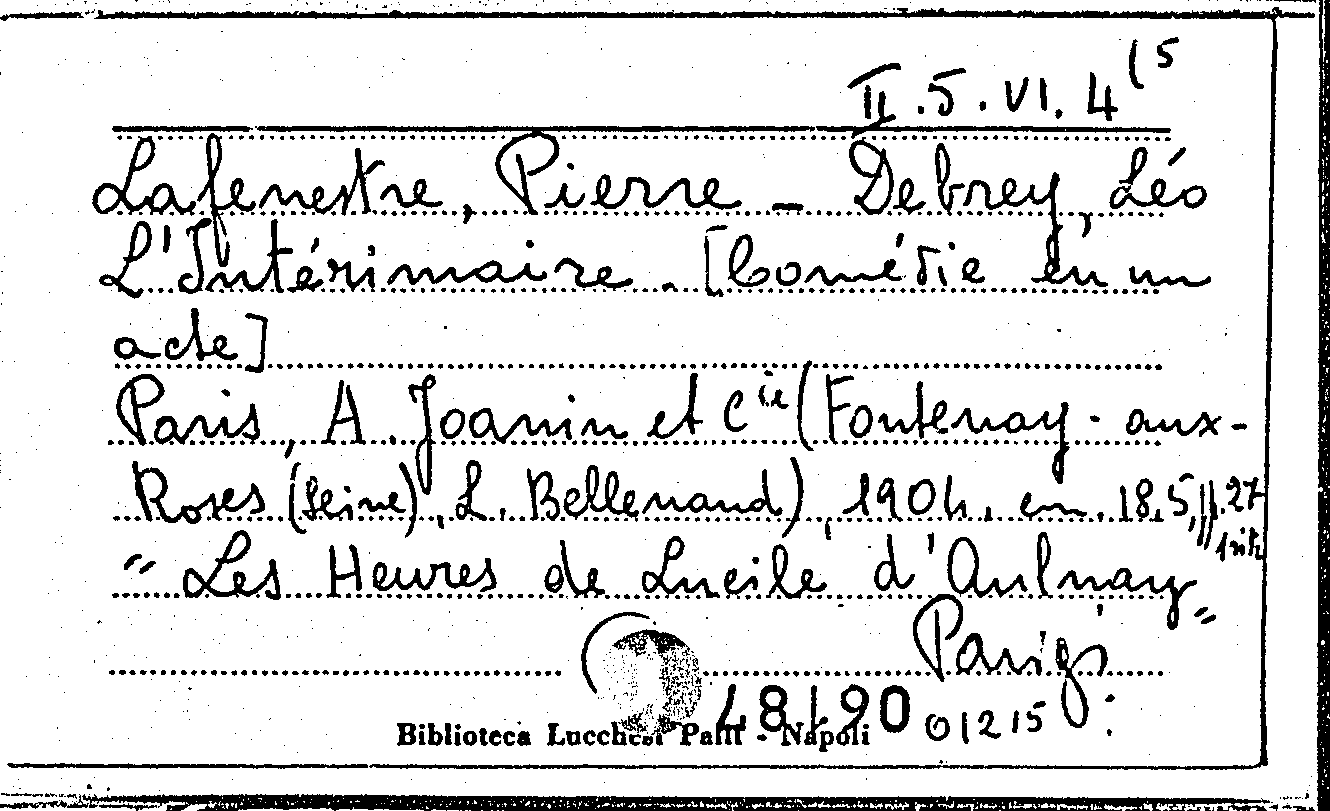 II.5.VI.4(5
Lafenestre, Pierre - Debrey, Léo
L'Intérimaire. [Comédie en un
acte]
Paris, A. Joanin et Cie (Fontenay-aux-
Roses (Seine), L. Bellenand), 1904, cm. 18,5, pp. 27
"Les Heures de Lucile d'Aulnay"
48190 01215
Biblioteca Lucchesi Palli - Napoli